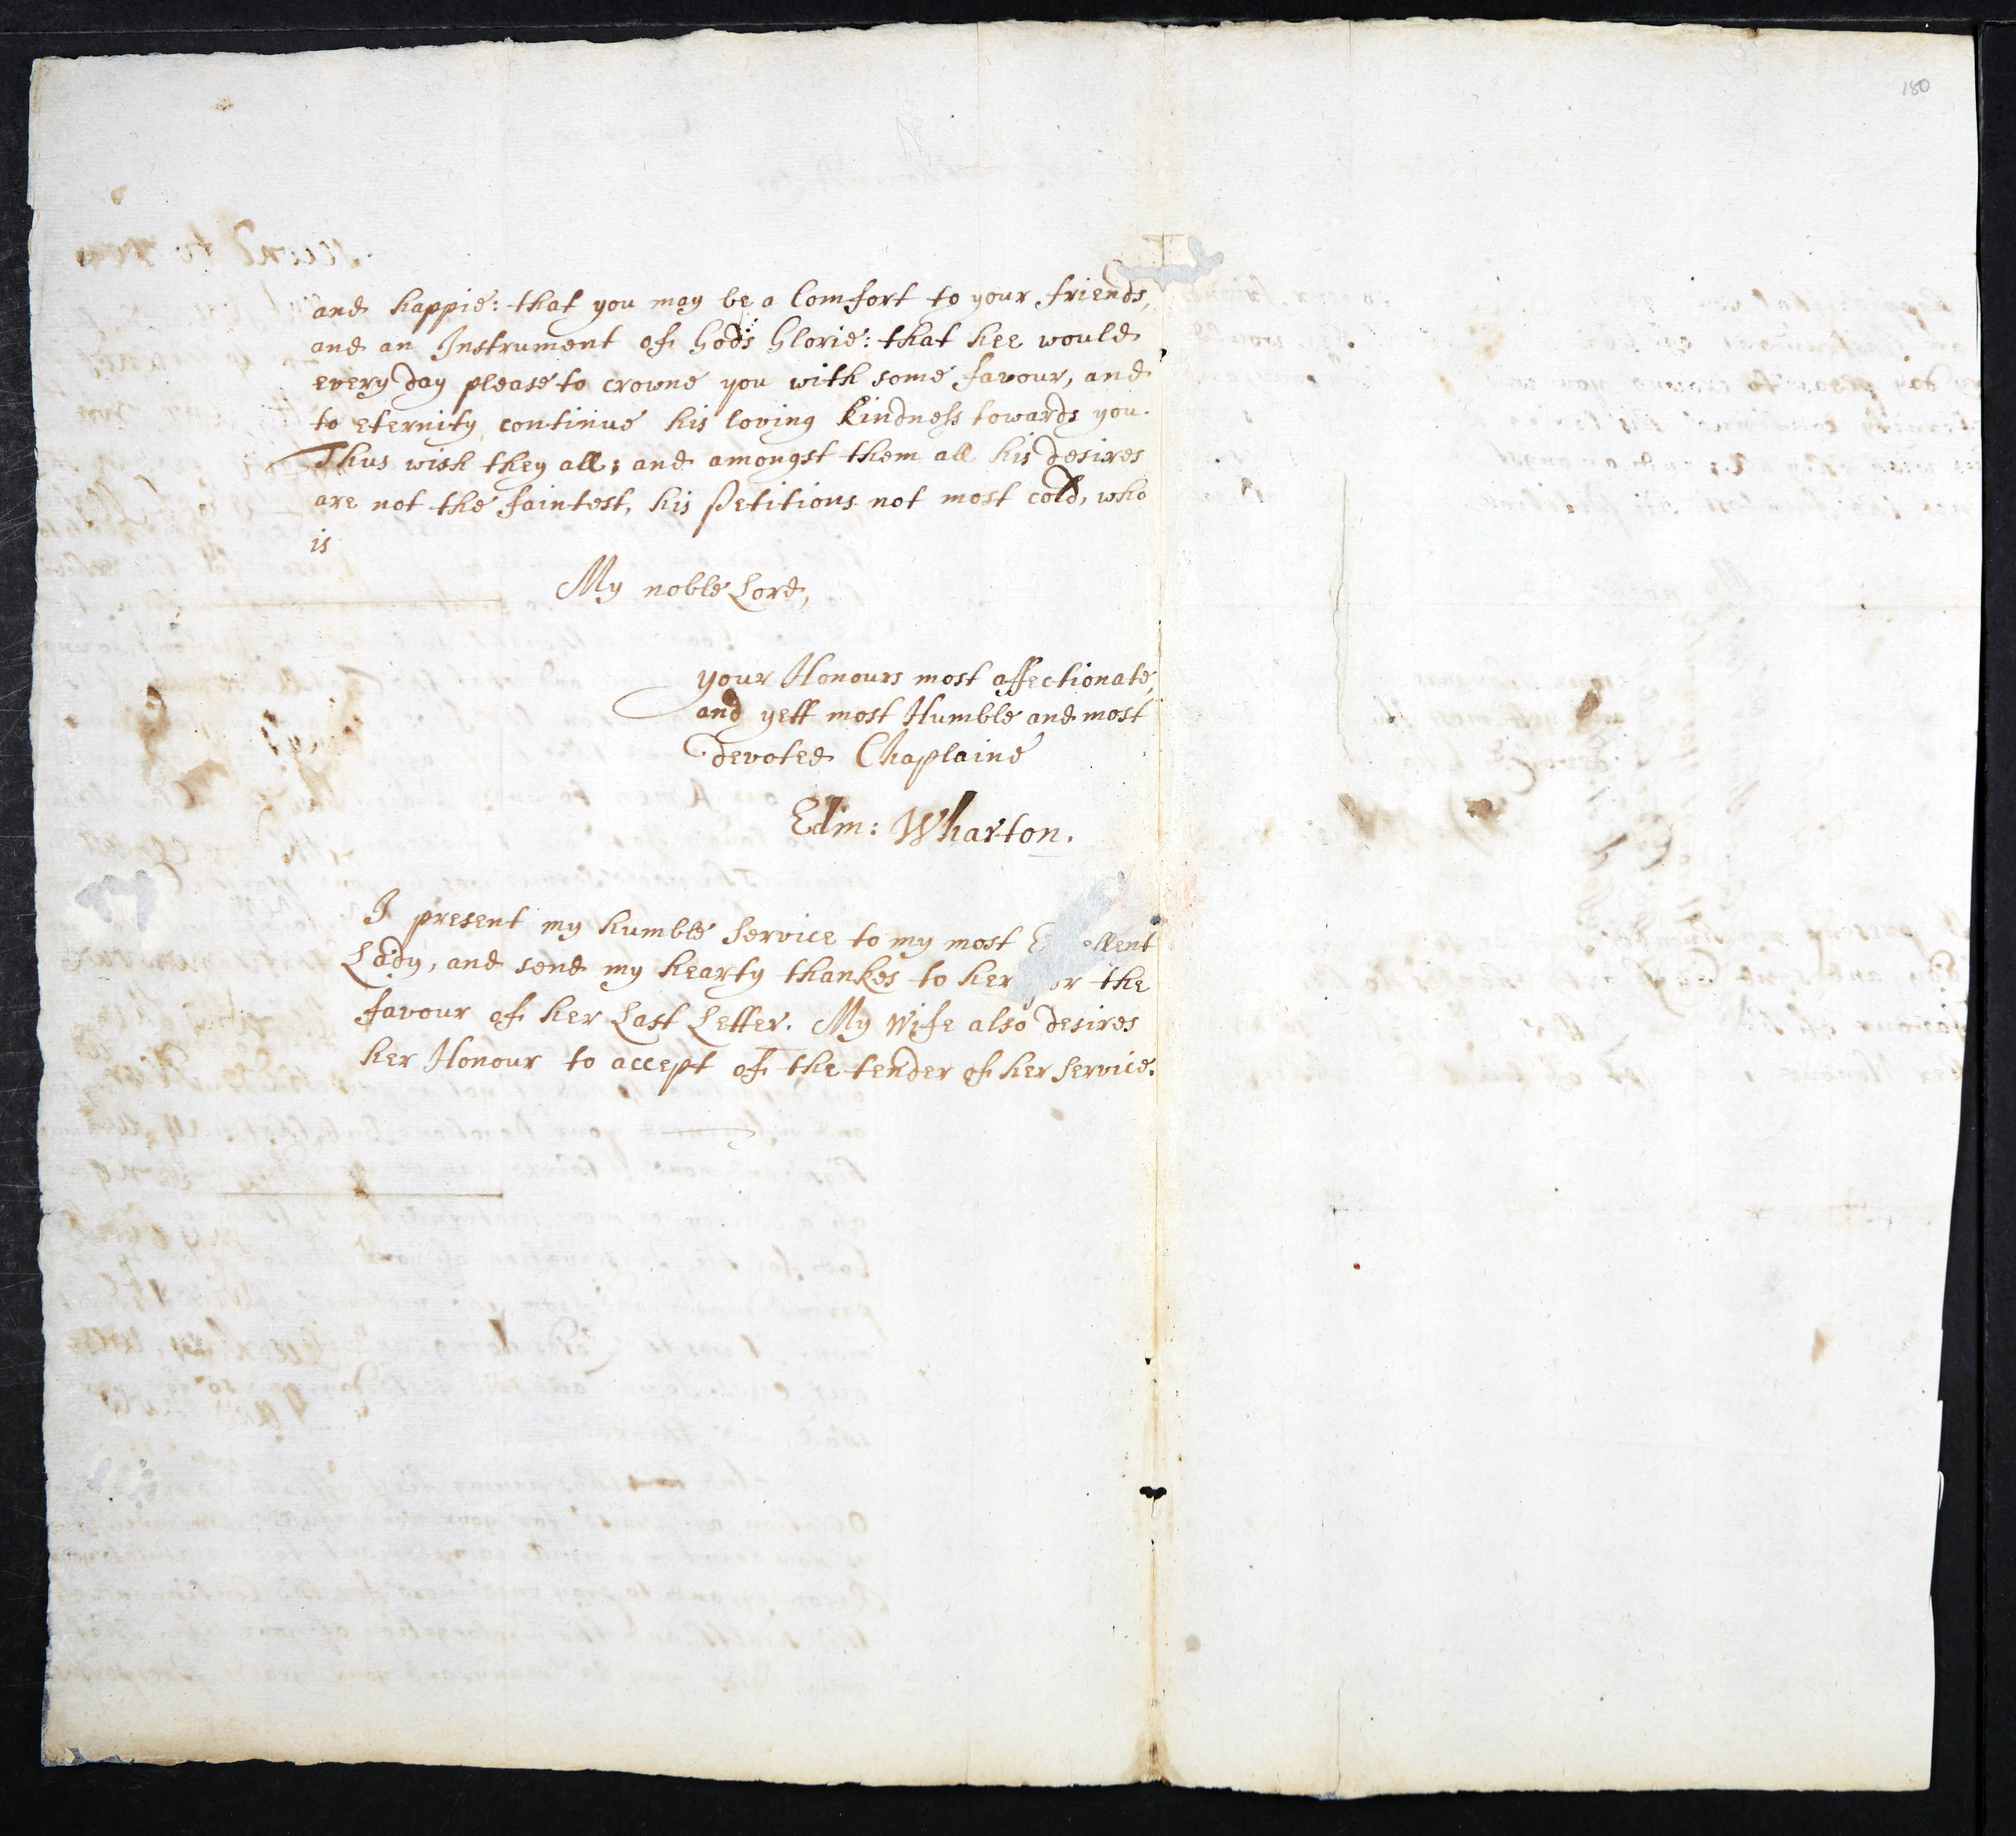 180
and happie: that you may be a Comfort to your friends,
and an Instrument of Gods Glorie: that hee would
every day please to crowne you with some favour, and
to eternity continue his loving Kindness towards you.
Thus wish they all; and amongst them all his desires
are not the faintest, his Petitions not most cold, who
is
My noble Lord,
your Honours most affectionate,
and yett most Humble and most
devoted Chaplaine
Edm: Wharton.
I present my humble Service to my most
Lady, and send my hearty thankes to her for the
favour of her Last Letter. My Wife also desires
her Honour to accept of the tender of her Service.